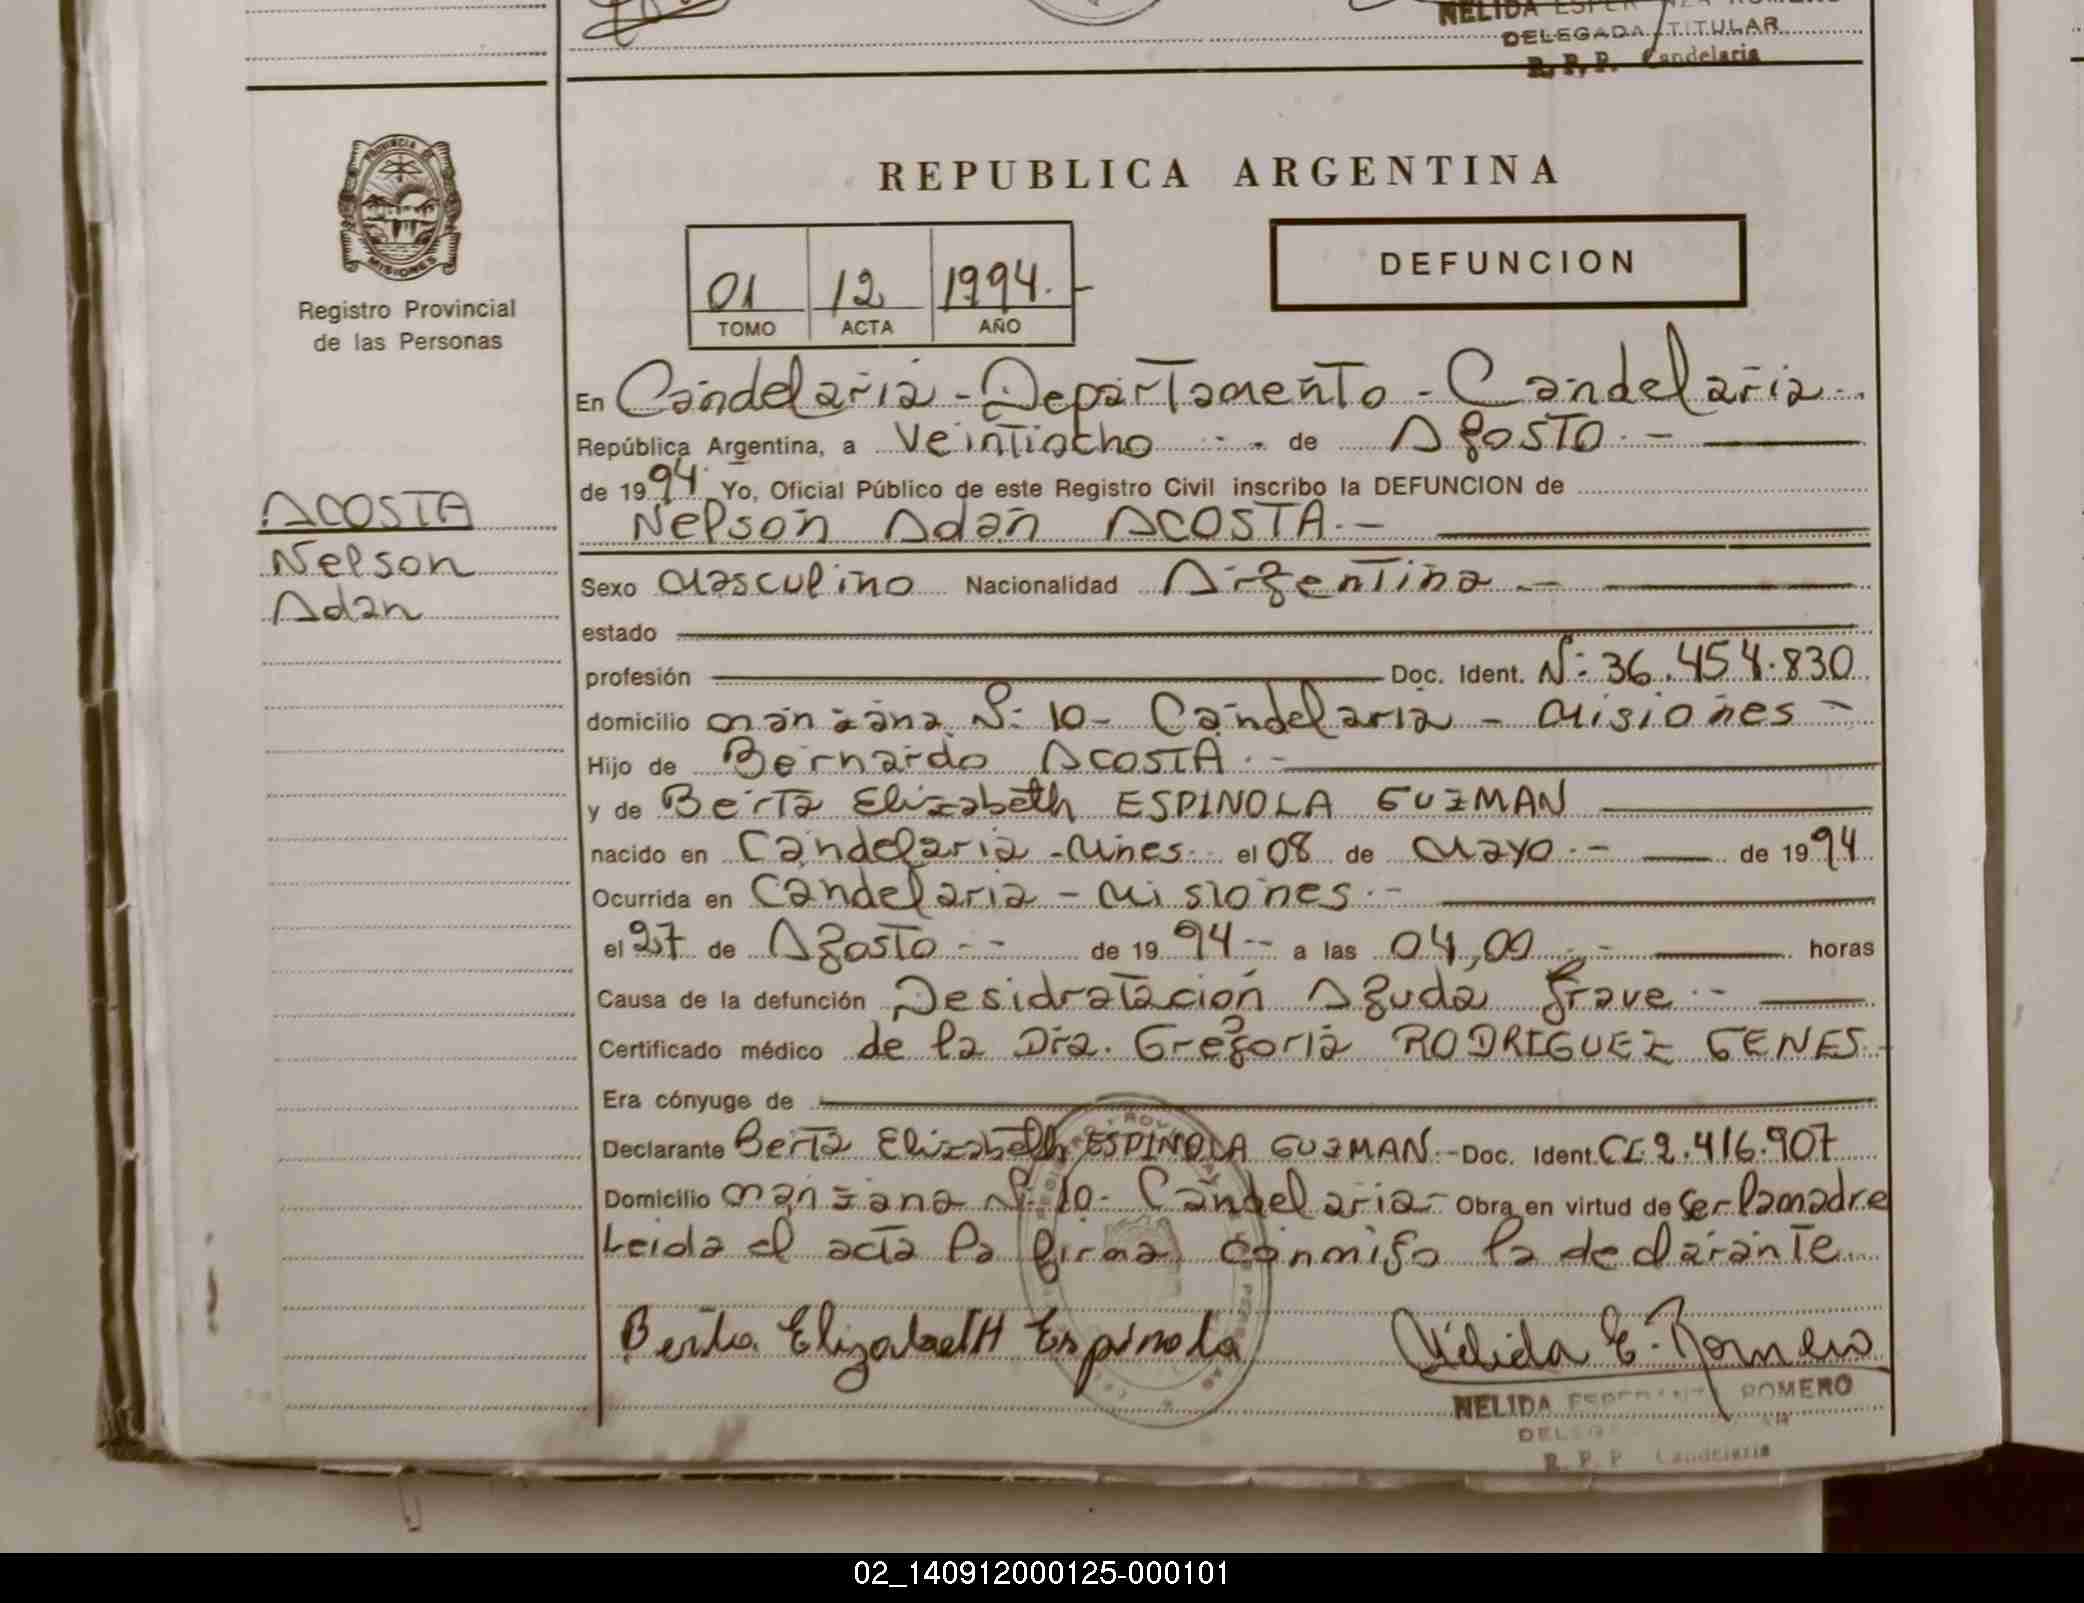 NELIDA
DELEGADA TITULAR
R. P. P. Candelaria
PROVINCIA DE
MISIONES
Registro Provincial
de las Personas
REPUBLICA ARGENTINA
01 12 1994.-
TOMO ACTA AÑO
DEFUNCION
En Candelaria - Departamento - Candelaria -.
República Argentina, a Veintiocho -.- de Agosto.-
de 1994. Yo, Oficial Público de este Registro Civil inscribo la DEFUNCION de
Nelson Adan ACOSTA.-
ACOSTA
Nelson
Adan
Sexo Masculino Nacionalidad Argentina -
estado
profesión Doc. Ident. Nº: 36.454.830
domicilio manzana Nº: 10 - Candelaria - Misiones -
Hijo de Bernardo ACOSTA.-
y de Berta Elizabeth ESPINOLA GUZMAN
nacido en Candelaria - Mnes. el 08 de Mayo.- de 1994
Ocurrida en Candelaria - Misiones.-
el 27 de Agosto -- de 1994 -- a las 04,00 .- horas
Causa de la defunción Desidratación Aguda grave.-
Certificado médico de la Dra. Gregoria RODRIGUEZ GENES.-
Era cónyuge de
Declarante Berta Elizabeth ESPINOLA GUZMAN.- Doc. Ident. CI. 2.416.907
Domicilio manzana Nº: 10 - Candelaria - Obra en virtud de ser la madre
Leida el acta la firma conmigo la declarante
Berta Elizabeth Espinola
Nélida E. Romero
NELIDA ESPERANZA ROMERO
R. P. P. Candelaria
02_140912000125-000101